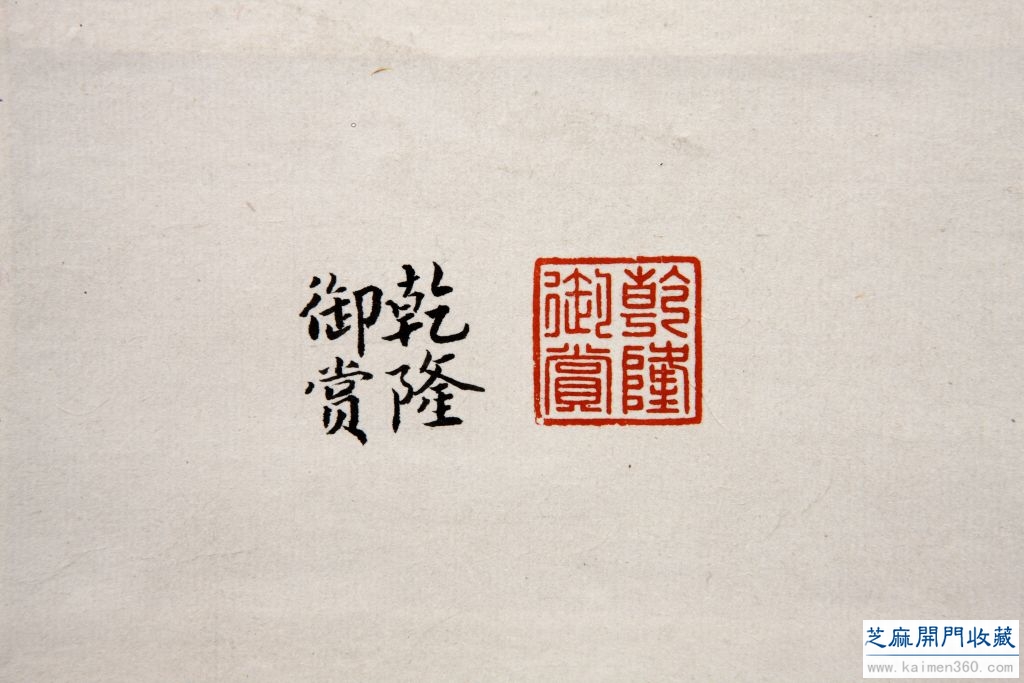 乾隆
御賞
乾隆
御賞
芝麻開門收藏
www.kaimen360.com